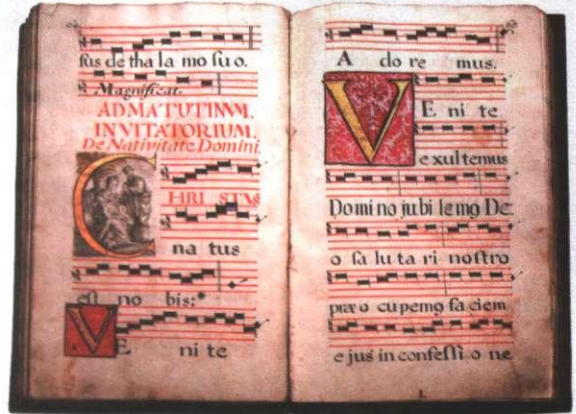 sus de tha la mo su o.
Magnificat.
AD MATUTINVM.
INVITATORIUM.
De Nativitate Domini.
CHRI STVS
na tus
est no bis:
VE ni te
A do re mus.
VE ni te
exultemus
Domino jubilemꝰ De:
o sa lu ta ri nostro
præ o cupemꝰ faciem
ejus in confessi o ne